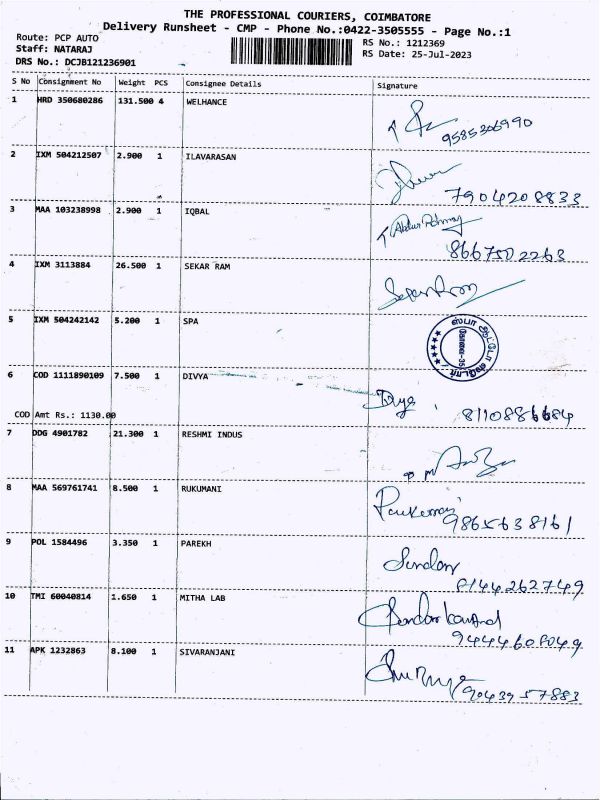 THE PROFESSIONAL COURIERS, COIMBATORE
Delivery Runsheet - CMP - Phone No.:0422-3505555 - Page No.:1
Route: PCP AUTO RS No.: 1212369
Staff: NATARAJ RS Date: 25-Jul-2023
DRS No.: DCJB121236901
S No Consignment No Weight PCS Consignee Details Signature
1 HRD 350680286 131.500 4 WELHANCE
9585306990
2 IXM 504212507 2.900 1 ILAVARASAN
7904208833
3 MAA 103238998 2.900 1 IQBAL
8667502263
4 IXM 3113884 26.500 1 SEKAR RAM
Sekar Ram
5 IXM 504242142 5.200 1 SPA
ஸ்பா ஆட்டோ
கோவை-35
6 COD 1111890109 7.500 1 DIVYA
Divya 8110886684
COD Amt Rs.: 1130.00
7 DDG 4901782 21.300 1 RESHMI INDUS
8 MAA 569761741 8.500 1 RUKUMANI
9865638161
9 POL 1584496 3.350 1 PAREKH
Sundar
8144262749
10 TMI 60040814 1.650 1 MITHA LAB
9444608049
11 APK 1232863 8.100 1 SIVARANJANI
9043957883